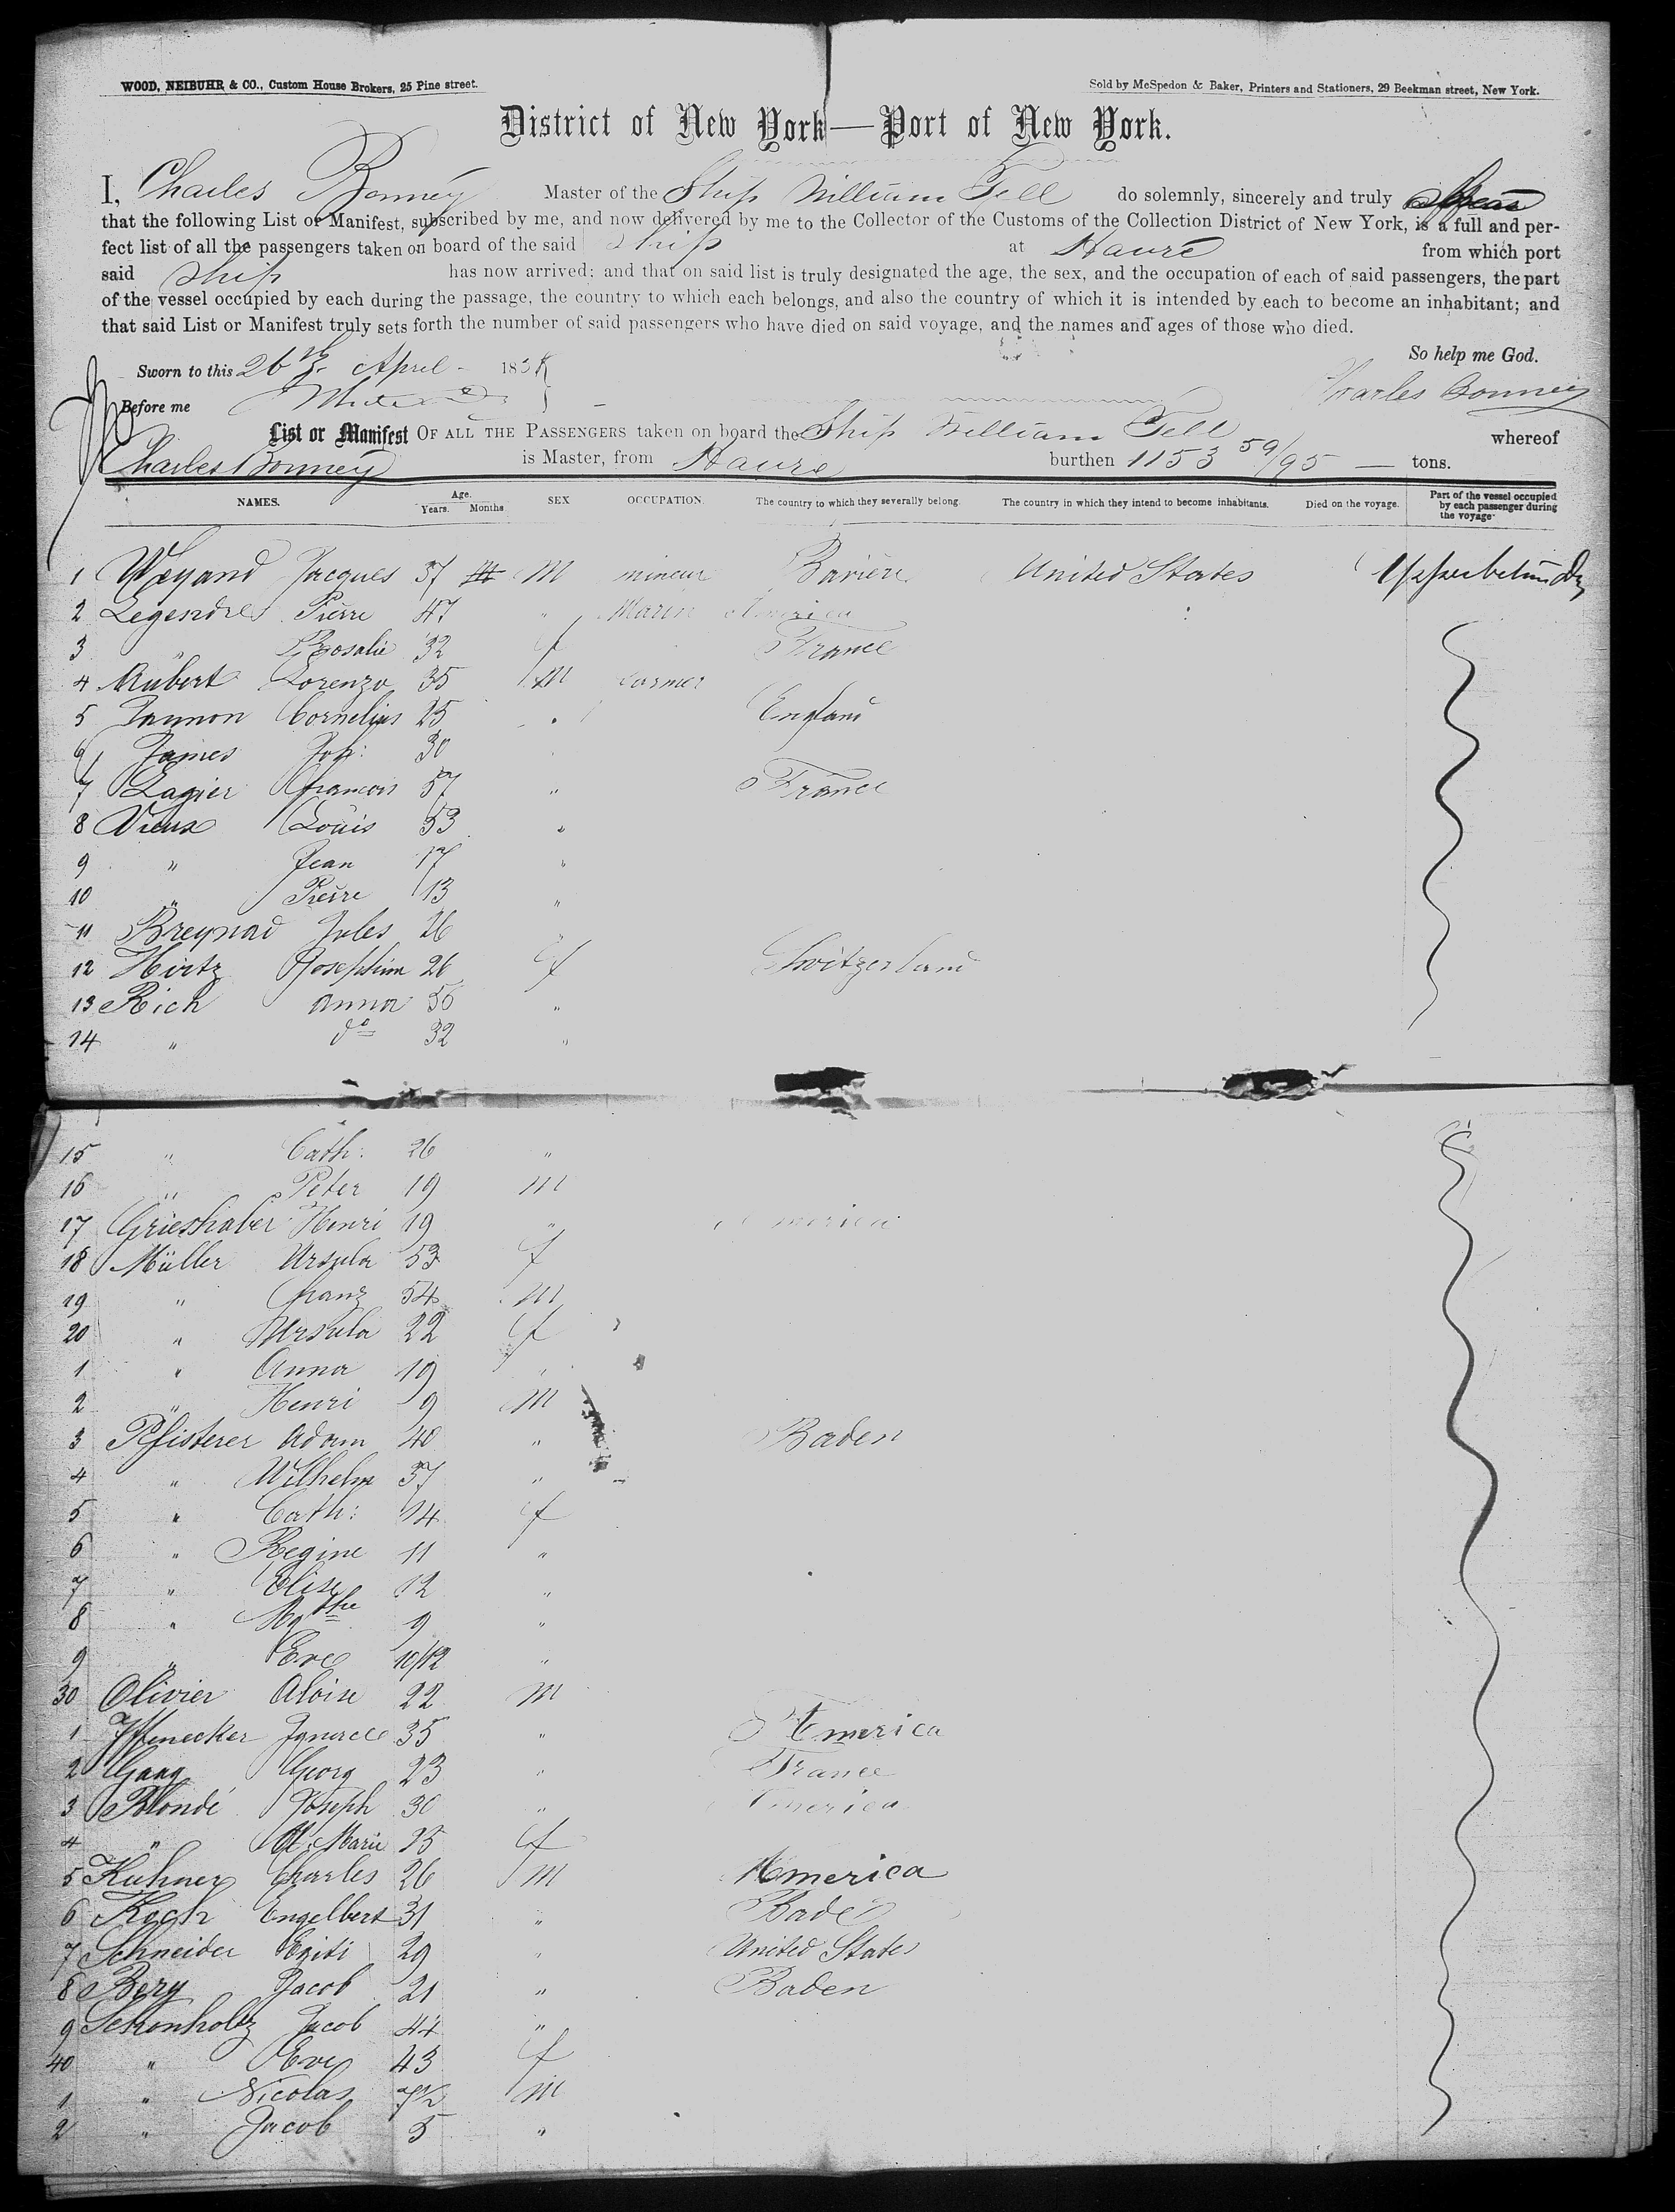 WOOD, NEIBUHR & CO., Custom House Brokers, 25 Pine street.
Sold by McSpedon & Baker, Printers and Stationers, 29 Beekman street, New York.
District of New York—Port of New York.
I, Charles Bonney Master of the Ship William Tell do solemnly, sincerely and truly
that the following List or Manifest, subscribed by me, and now delivered by me to the Collector of the Customs of the Collection District of New York, is a full and per-
fect list of all the passengers taken on board of the said Ship at Havre from which port
said Ship has now arrived; and that on said list is truly designated the age, the sex, and the occupation of each of said passengers, the part
of the vessel occupied by each during the passage, the country to which each belongs, and also the country of which it is intended by each to become an inhabitant; and
that said List or Manifest truly sets forth the number of said passengers who have died on said voyage, and the names and ages of those who died.
So help me God.
Sworn to this 26th April 185
Charles Bonney
Before me
List or Manifest OF ALL THE PASSENGERS taken on board the Ship William Tell whereof
Charles Bonney is Master, from Havre burthen 1153 59/95 — tons.
NAMES. Age. Years. Months SEX OCCUPATION. The country to which they severally belong. The country in which they intend to become inhabitants. Died on the voyage. Part of the vessel occupied by each passenger during the voyage.
1 Weyand Jacques 37 M mineur Baviere United States
2 Legendre Pierre 47 " Marin America
3 " Rosalie 32 f France
4 Aubert Lorenzo 35 M farmer
5 Cornelius 25 " England
6 James Joh: 30
7 Lagier francois 57 " France
8 Vieux Louis 53 "
9 " Jean 17 "
10 " Pierre 13 "
11 Breynad Jules 26 "
12 Hirtz Josephine 26 f Switzerland
13 Rich anna 56 "
14 " do 32 "
15 " Cath: 26 "
16 " Peter 19 m
17 Grieshaber Henri 19 " America
18 Müller Ursula 53 f
19 " franz 54 m
20 " Ursula 22 f
1 " Anna 19 "
2 " Henri 9 m
3 Pfisterer Adam 40 " Baden
4 " Wilhelm 37 "
5 " Cath: 14 f
6 " Regine 11 "
7 " Elise 12 "
8 " Mgthe 9 "
9 " Eve 10/12 "
30 Olivier Aloise 22 m
1 Iffenecker Ignace 35 " America
2 Gang Georg 23 " France
3 Blondé Joseph 30 " America
4 " M. Marie 25 f
5 Kuhner Charles 26 m America
6 Koch Engelbert 31 " Baden
7 Schneider Egiti 29 " United States
8 Berg Jacob 21 " Baden
9 Schonholtz Jacob 44 "
40 " Eve 43 f
1 " Nicolas 7½ m
2 " Jacob 5 "